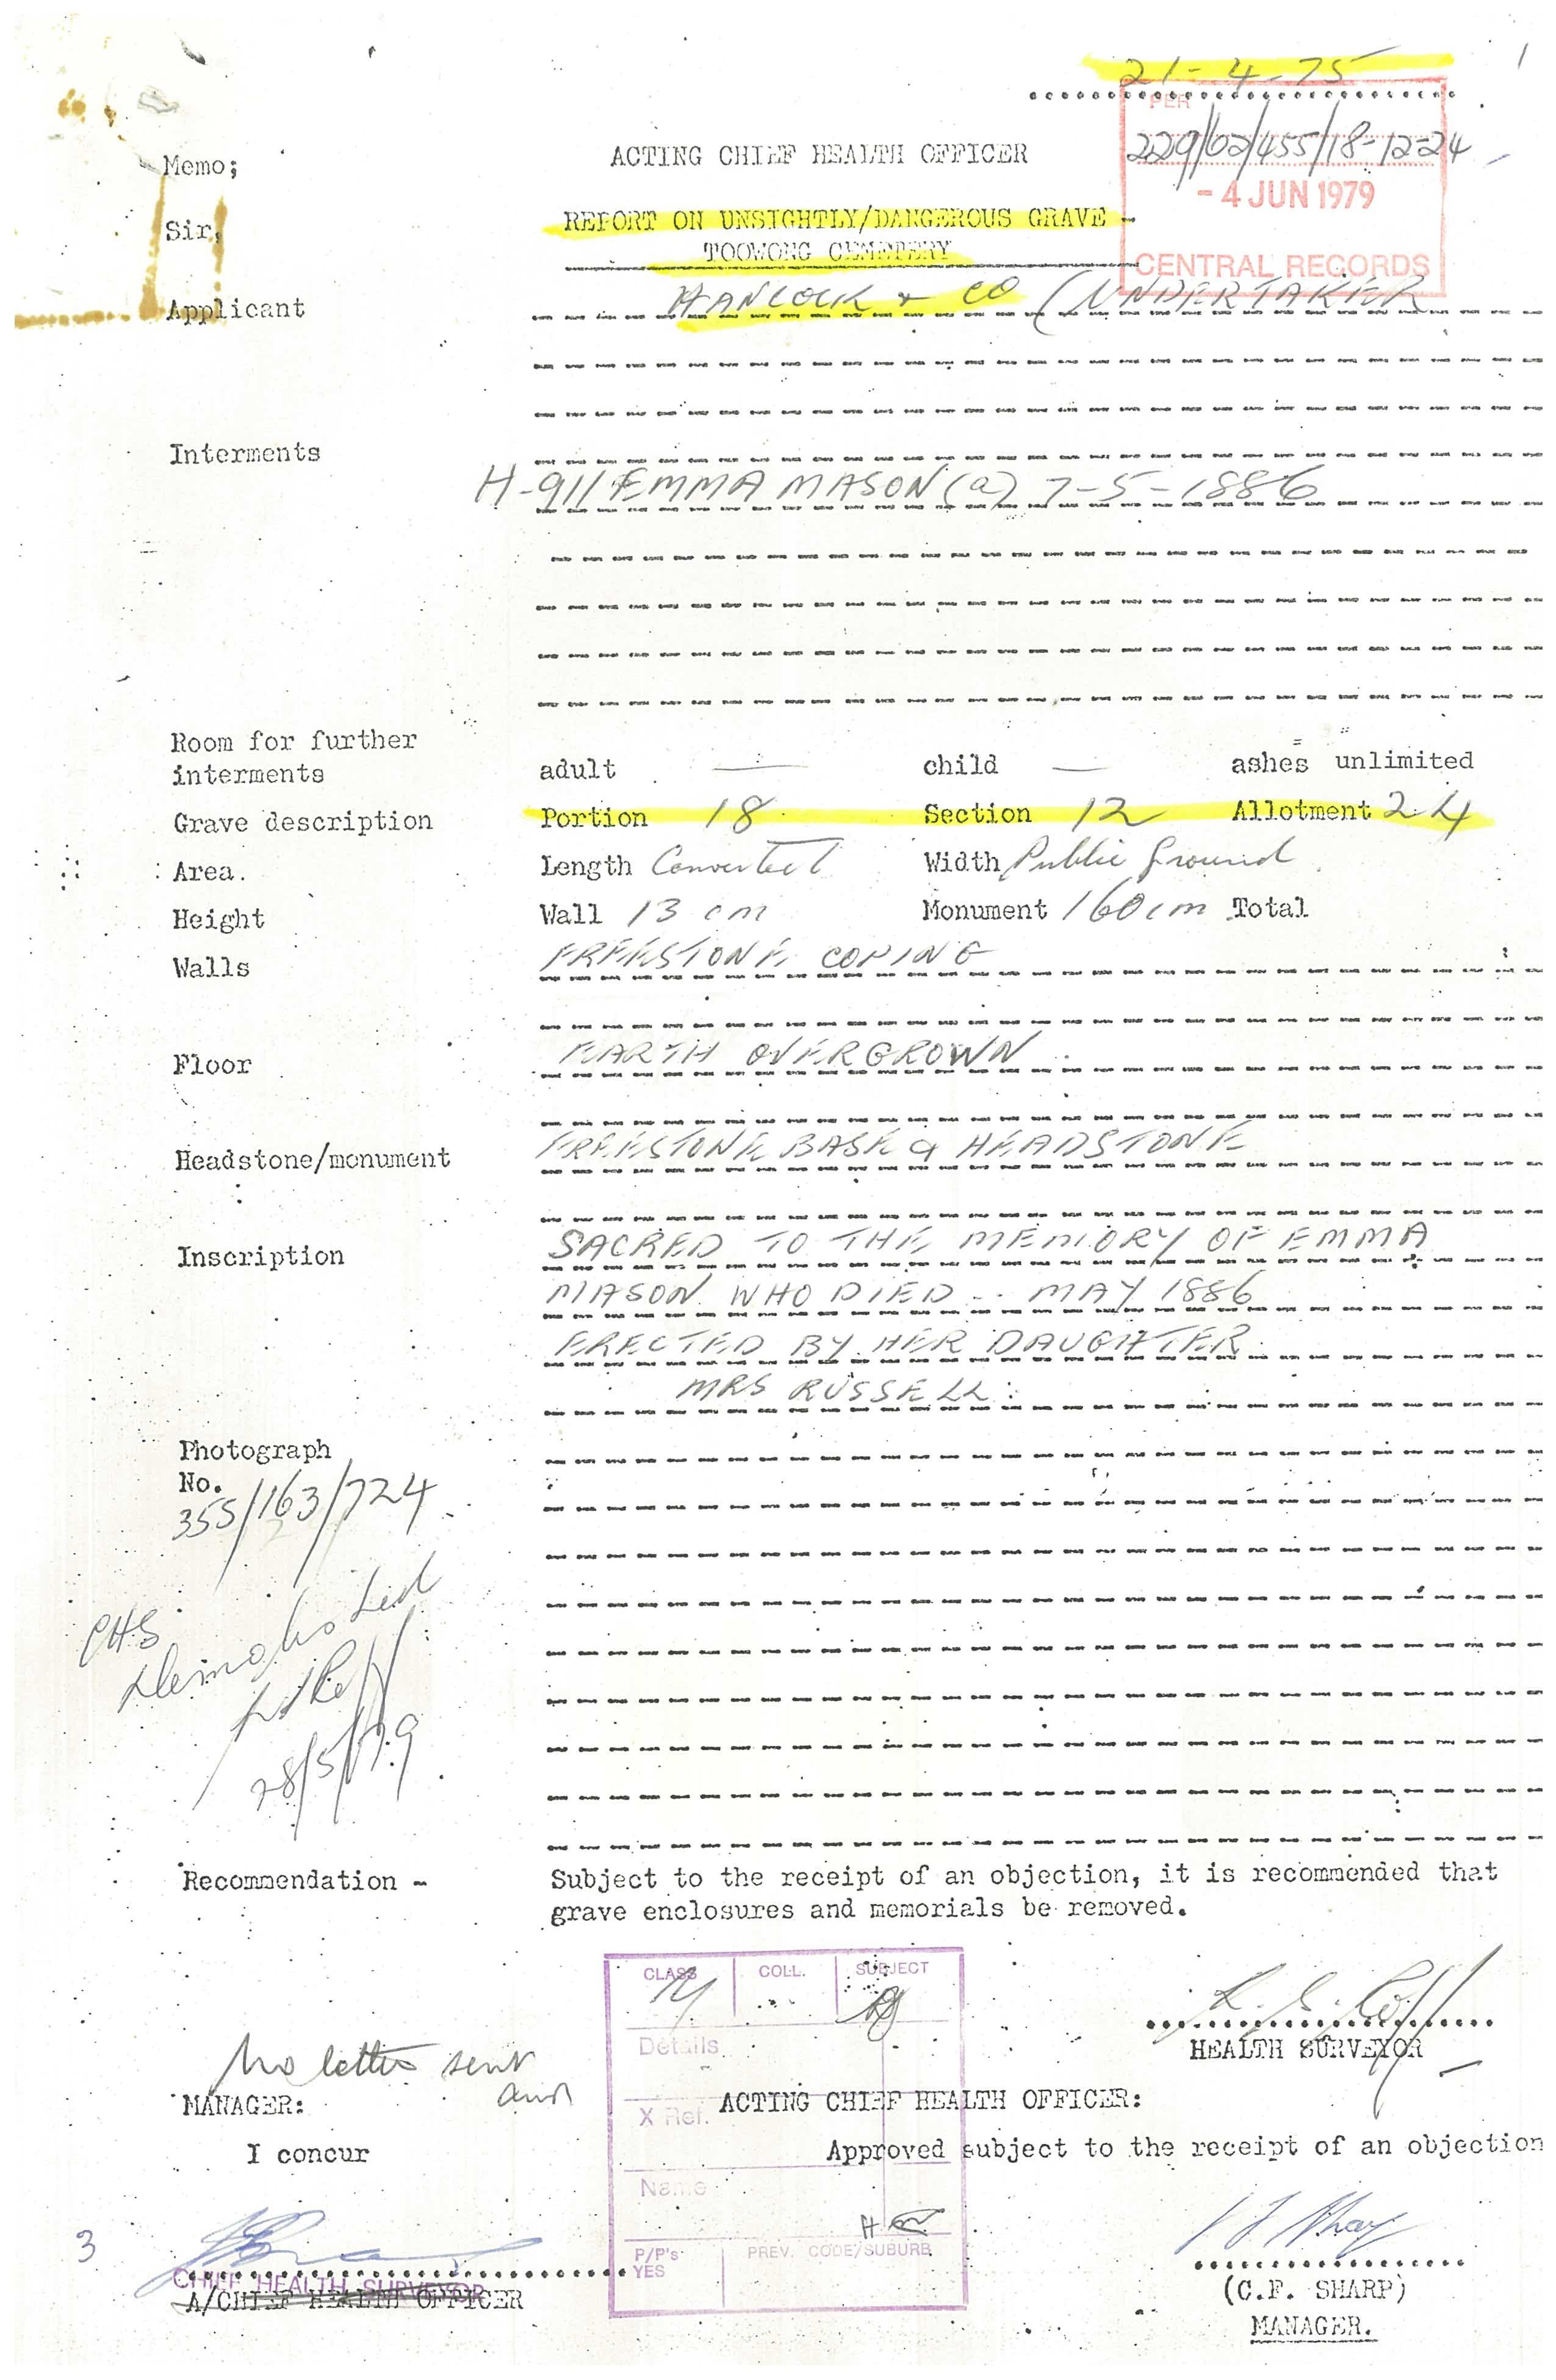 21-4-75
1
PER
229/02/455/18-12-24
- 4 JUN 1979
CENTRAL RECORDS
Memo;
ACTING CHIEF HEALTH OFFICER
Sir,
REPORT ON UNSIGHTLY/DANGEROUS GRAVE -
TOOWONG CEMETERY
Applicant HANCOCK & CO (UNDERTAKER
Interments
H-911 EMMA MASON (a) 7-5-1886
Room for further
interments adult — child — ashes unlimited
Grave description Portion 18 Section 12 Allotment 24
Area. Length Converted Width Public Ground
Height Wall 13 cm Monument 160cm Total
Walls FREESTONE COPING
Floor EARTH OVERGROWN
Headstone/monument FREESTONE BASE & HEADSTONE
Inscription SACRED TO THE MEMORY OF EMMA
MASON WHO DIED -- MAY 1886
ERECTED BY HER DAUGHTER
MRS RUSSELL
Photograph
No.
355/163/724
CHS
Demolished
28/5/79
Recommendation - Subject to the receipt of an objection, it is recommended that
grave enclosures and memorials be removed.
CLASS COLL. SUBJECT
Details
X Ref.
Name
P/P's PREV. CODE/SUBURB
YES
HEALTH SURVEYOR
No letter sent
MANAGER: ACTING CHIEF HEALTH OFFICER:
I concur Approved subject to the receipt of an objection
3
CHIEF HEALTH SURVEYOR
A/CHIEF HEALTH OFFICER
(C.F. SHARP)
MANAGER.